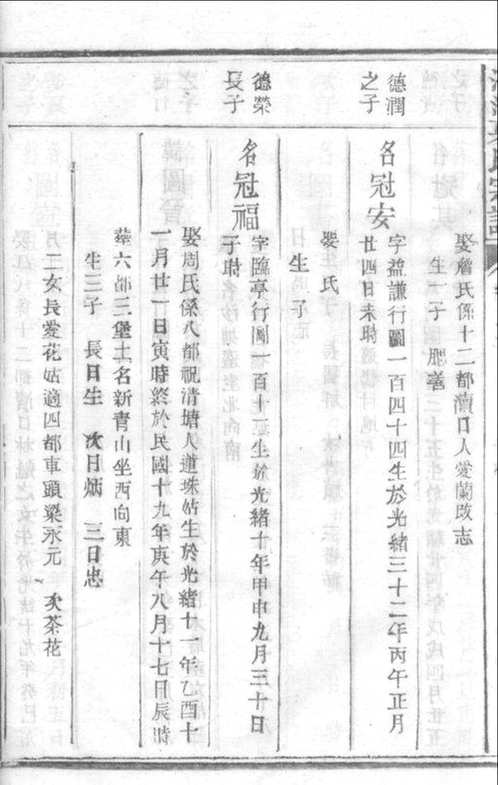 娶詹氏係十二都瀆口人愛蘭改志
生一子
德潤
之子
名冠安
字益謙行圖一百四十四生於光緒三十二年丙午正月
廿四日未時
娶 氏
生 子
德榮
長子
名冠福
字臨亭行圖一百十二生於光緒十年甲申九月三十日
子時
娶周氏係八都祝清塘人道珠姑生於光緒十一年乙酉十
一月廿一日寅時終於民國十九年庚午八月十七日辰時
葬六都三堡土名新青山坐西向東
生三子 長日生 次日炳 三日忠
月二女長愛花姑適四都車頭梁永元 次茶花